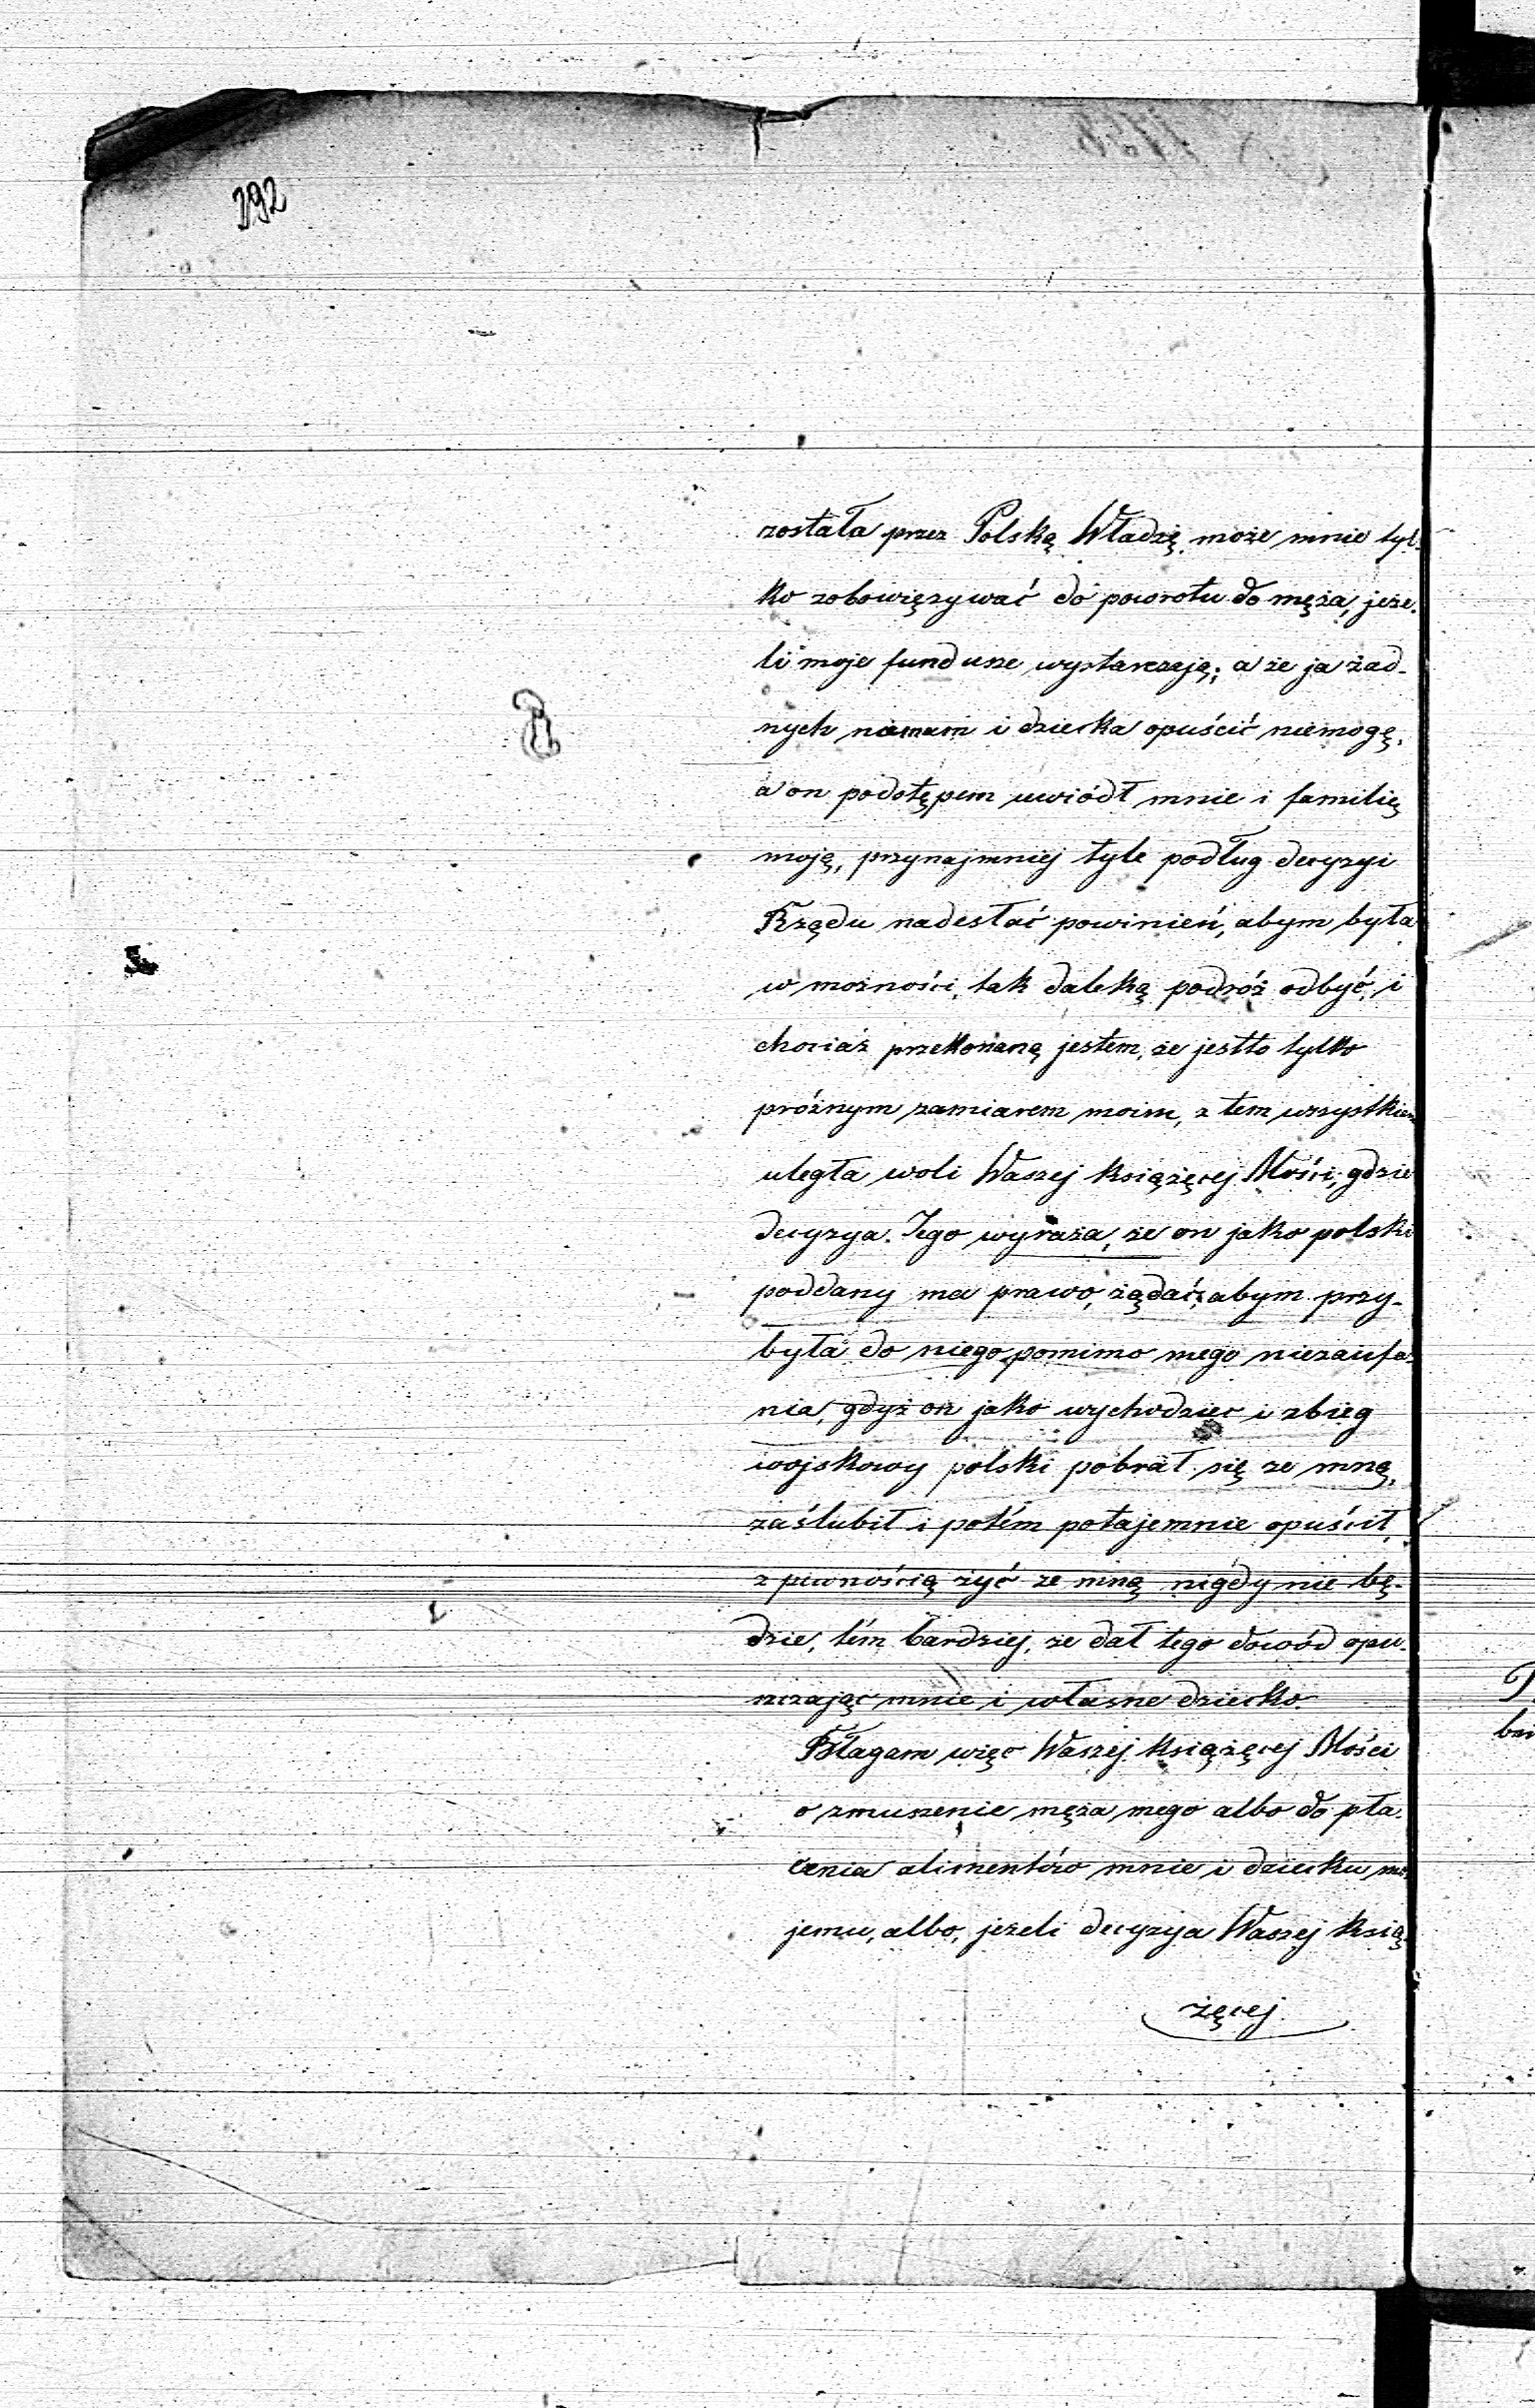 392
została przez Polską Władzę może mnie tyl-
ko zobowięzywać do powrotu do męża, jeże-
li moje fundusze wystarczają; a że ja żad-
nych niemam i dziecka opuścić niemogę,
a on podstępem uwiódł mnie i familię
moję, przynajmniej tyle podług decyzyi
Rządu nadesłać powinień, abym była
w możności, tak daleką podróż odbyć, i
chociaż przekonaną jestem, że jestto tylko
próżnym zamiarem moim, z tem wszystkiem
uległa woli Waszej Książęcej Mości, gdzie
decyzya Jego wyraża, że on jako polski
poddany ma prawo, żądać, abym przy-
była do niego, pomimo mego niezaufa-
nia, gdyż on jako wychodziec i zbieg
wojskowy polski pobrał się ze mną,
zaślubił i potém potajemnie opuścił,
z pewnością żyć ze mną nigdy nie bę-
dzie, tém bardziej, że dał tego dowód opu-
szczając mnie i własne dziecko.
Błagam więc Waszej Książęcej Mości
o zmuszenie męża mego albo do pła-
cenia alimentów mnie i dziecku mo-
jemu, albo, jeżeli decyzya Waszej Ksią-
żęcej